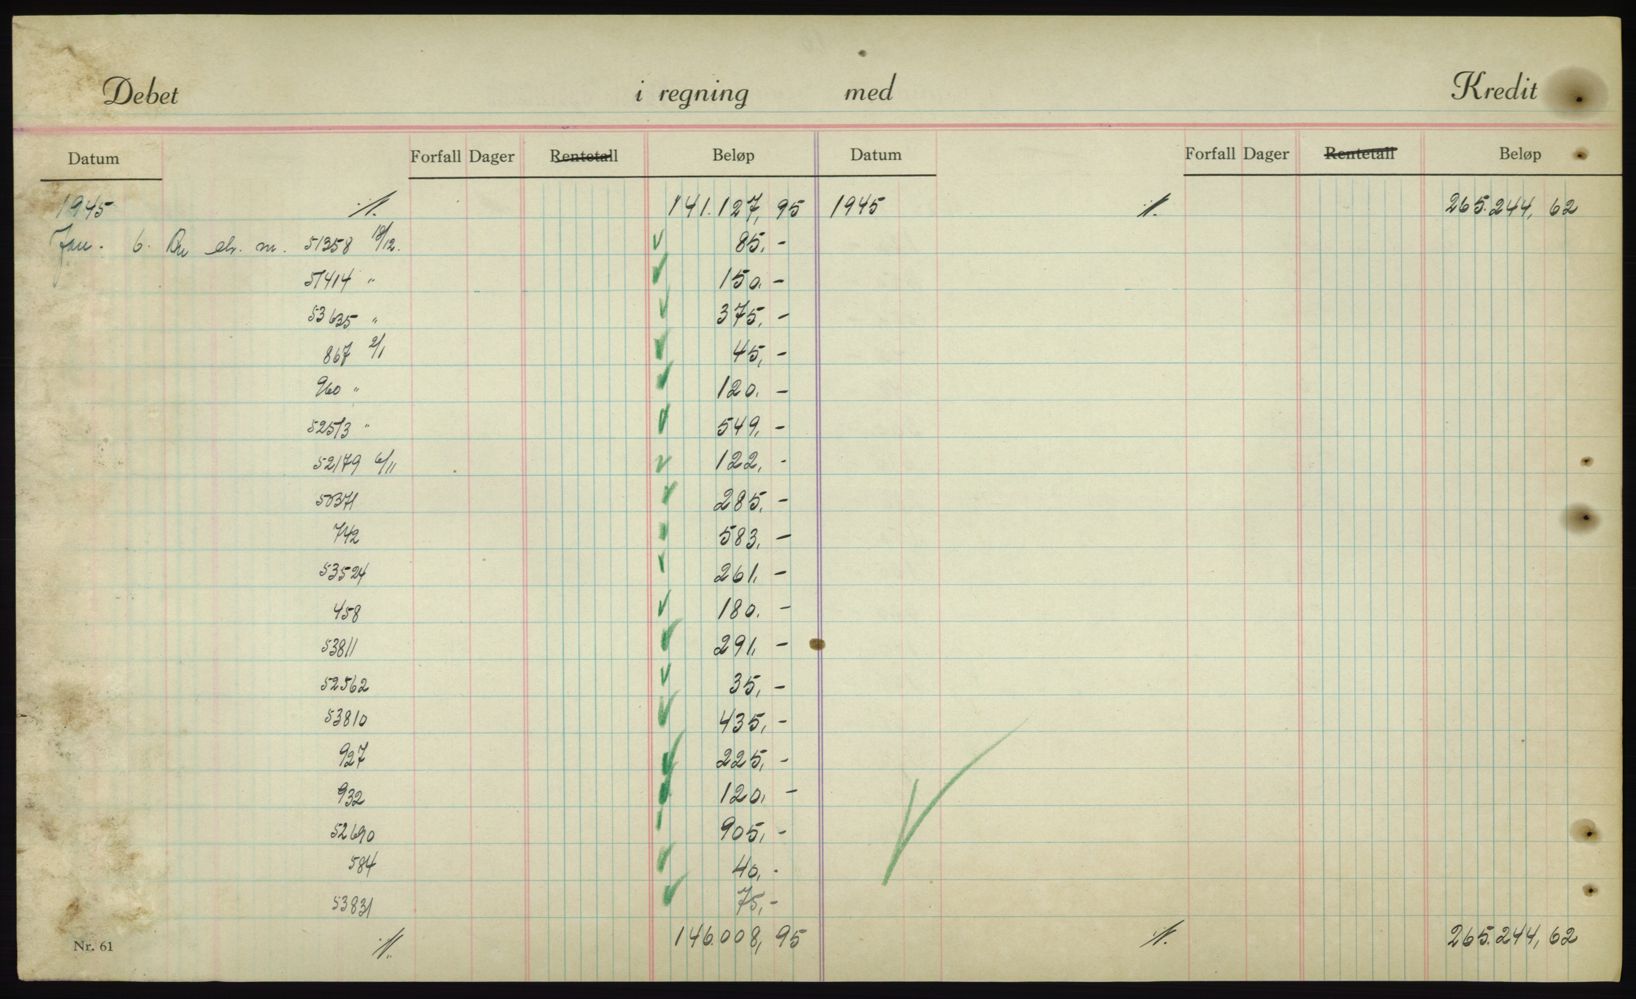 Debet i regning med Kredit
Datum Forfall Dager Rentetall Beløp Datum Forfall Dager Rentetall Beløp
1945 141.127,95 1945 265.244,62
Jan. 6. 51358 18/12. 85,-
51414 " 150,-
53635 " 375,-
867 2/1 45,-
960 " 120.-
52513 " 549,-
52179 6/11 122,-
50371 285,-
742 583,-
53524 261,-
458 180.-
53811 291,-
52562 35,-
53810 435,-
927 225,-
932 120,-
52690 905,-
584 40,-
53831 75,-
Nr. 61 146.008,95 265.244,62